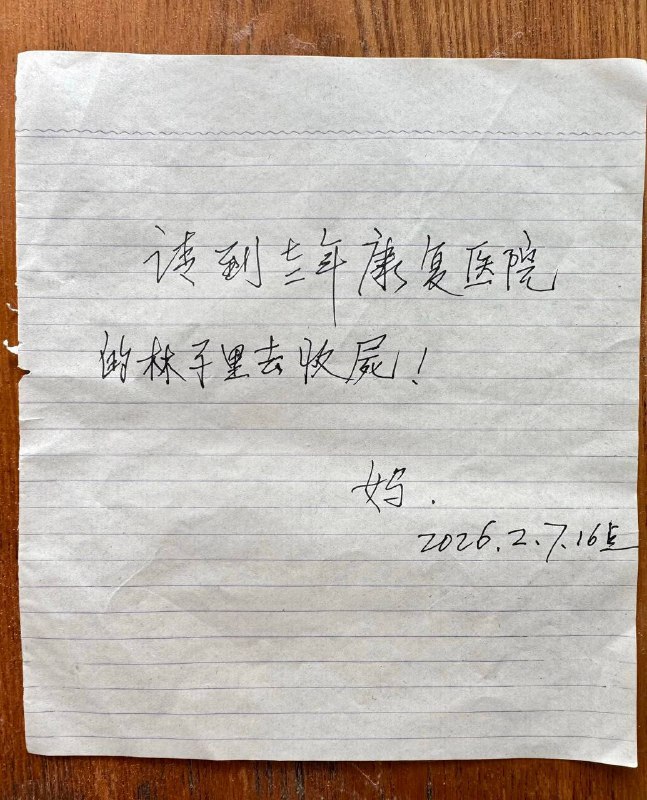 请到三年康复医院
的林子里去收屍！
妈.
2026.2.7.16点